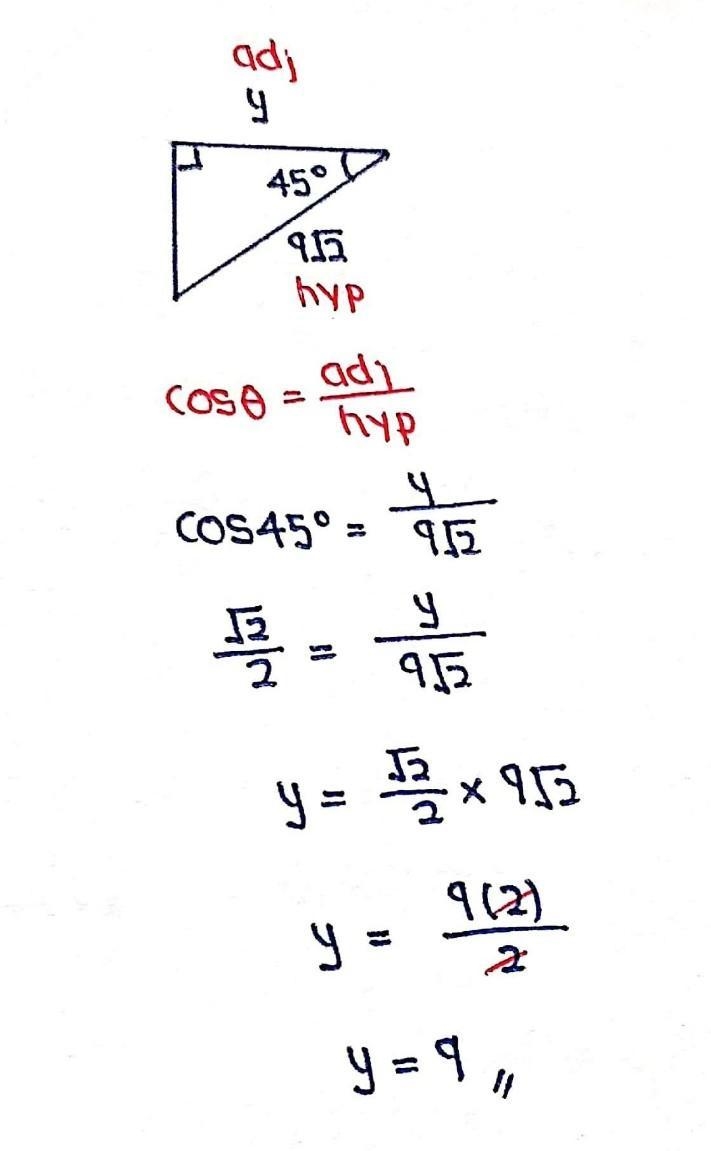 adj
y
45°
9√2
hyp
cosθ = adj/hyp
cos45° = y/9√2
√2/2 = y/9√2
y = √2/2 × 9√2
y = 9(2)/2
y = 9 〃